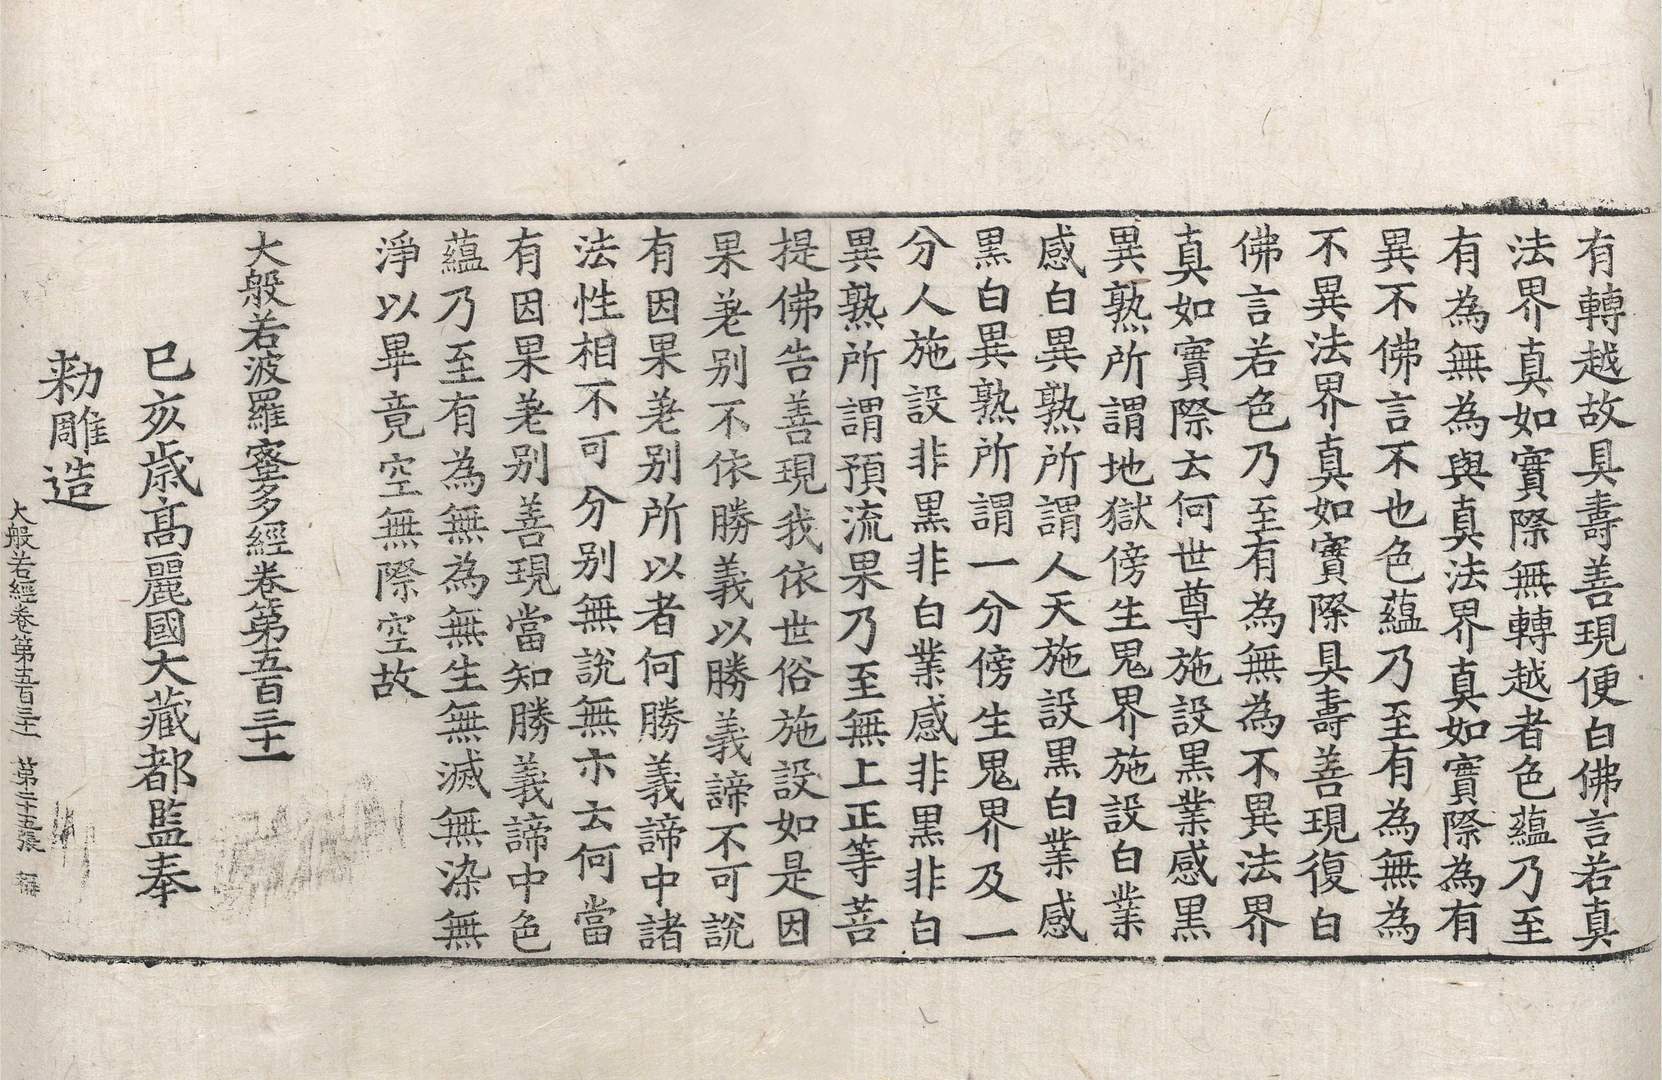 有轉越故具壽善現便白佛言若真
法界真如實際無轉越者色蘊乃至
有為無為與真法界真如實際為有
異不佛言不也色蘊乃至有為無為
不異法界真如實際具壽善現復白
佛言若色乃至有為無為不異法界
真如實際云何世尊施設黑業感黑
異熟所謂地獄傍生鬼界施設白業
感白異熟所謂人天施設黑白業感
黑白異熟所謂一分傍生鬼界及一
分人施設非黑非白業感非黑非白
異熟所謂預流果乃至無上正等菩
提佛告善現我依世俗施設如是因
果差別不依勝義以勝義諦不可說
有因果差別所以者何勝義諦中諸
法性相不可分別無說無示云何當
有因果差別善現當知勝義諦中色
蘊乃至有為無為無生無滅無染無
淨以畢竟空無際空故
大般若波羅蜜多經卷第五百三十一
己亥歲高麗國大藏都監奉
勅雕造
大般若經卷第五百三十一 第二十五張